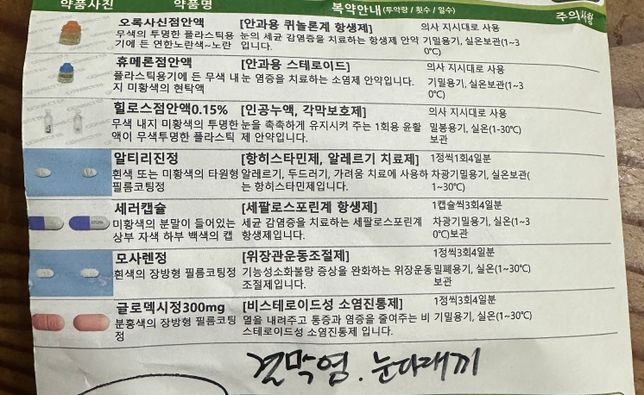 약품사진 약품명 복약안내(투약량 / 횟수 / 일수) 주의사항
오록사신점안액 [안과용 퀴놀론계 항생제] 의사 지시대로 사용
무색의 투명한 플라스틱용 눈의 세균 감염증을 치료하는 항생제 안약 기밀용기, 실온보관(1~3
기에 든 연한노란색~노란 입니다. 0℃)
휴메론점안액 [안과용 스테로이드] 의사 지시대로 사용
플라스틱용기에 든 무색 내 눈 염증을 치료하는 소염제 안약입니다. 기밀용기, 실온보관(1~3
지 미황색의 현탁액 0℃)
힐로스점안액0.15% [인공누액, 각막보호제] 의사 지시대로 사용
무색 내지 미황색의 투명한 눈을 촉촉하게 유지시켜 주는 1회용 윤활 밀봉용기, 실온(1-30℃)
액이 무색투명한 플라스틱 제 안약입니다. 보관
알티리진정 [항히스타민제, 알레르기 치료제] 1정씩1회4일분
흰색 또는 미황색의 타원형 알레르기, 두드러기, 가려움 치료에 사용하 차광기밀용기, 실온보관(
필름코팅정 는 항히스타민제입니다. 1~30℃)
세러캡슐 [세팔로스포린계 항생제] 1캡슐씩3회4일분
미황색의 분말이 들어있는 세균 감염증을 치료하는 세팔로스포린계 차광기밀용기, 실온(1~3
상부 자색 하부 백색의 캡 항생제입니다. 0℃)보관
모사렌정 [위장관운동조절제] 1정씩3회4일분
흰색의 장방형 필름코팅정 기능성소화불량 증상을 완화하는 위장운동 밀폐용기, 실온(1~30℃)
조절제입니다. 보관
글로덱시정300mg [비스테로이드성 소염진통제] 1정씩3회4일분
분홍색의 장방형 필름코팅 열을 내려주고 통증과 염증을 줄여주는 비 기밀용기, 실온(1~30℃)
정 스테로이드성 소염진통제 입니다.
결막염. 눈다래끼